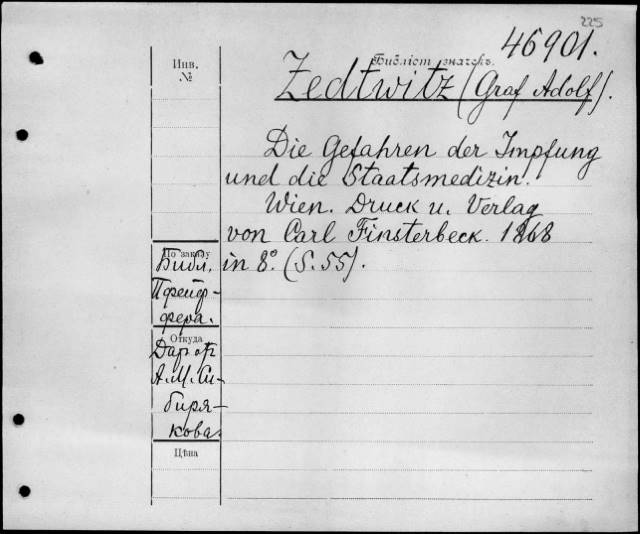 225
46901.
Инв.
№
Библіот. значекъ.
Zedtwitz (Graf Adolf).
Die Gefahren der Impfung
und die Staatsmedizin.
Wien. Druck u. Verlag
von Carl Finsterbeck. 1868
in 8º. (S. 55).
По заказу
Библ.
Пфейф-
фера.
Откуда
Дар от
А. М. Си-
биря-
кова.
Цѣна